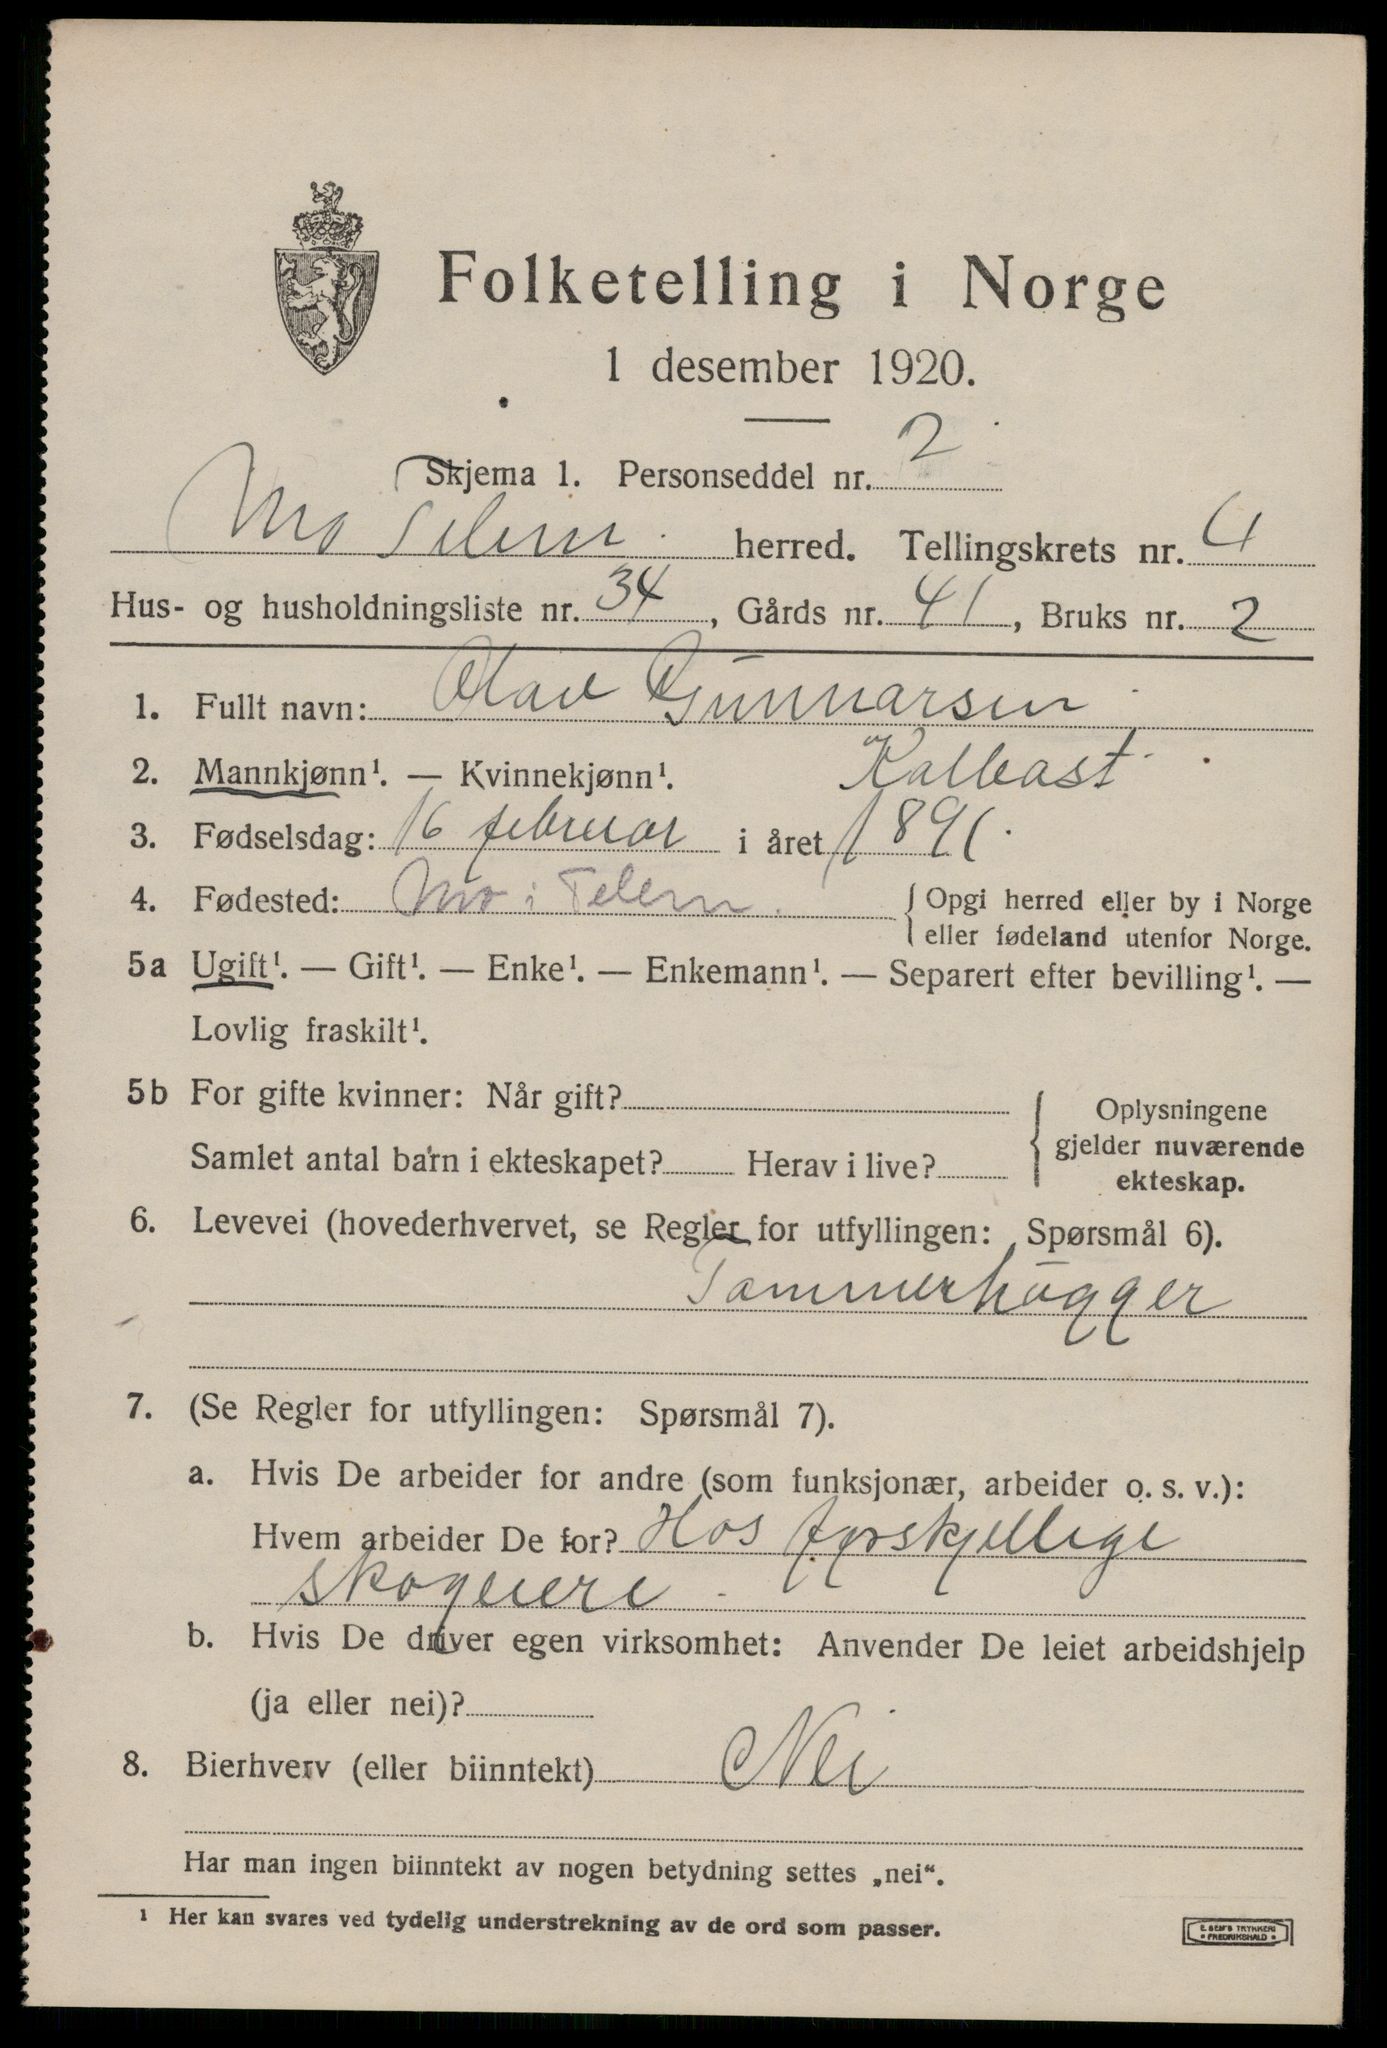 Folketelling i Norge
1 desember 1920.
Skjema 1. Personseddel nr. 2
Mo Telem. herred. Tellingskrets nr. 4
Hus- og husholdningsliste nr. 34, Gårds nr. 41, Bruks nr. 2
1. Fullt navn: Olav Gunnarsen
2. Mannkjønn¹. — Kvinnekjønn¹. Kalbast
3. Fødselsdag: 16 februar i året 1891.
4. Fødested: Mo i Telem. { Opgi herred eller by i Norge
eller fødeland utenfor Norge.
5a Ugift¹. — Gift¹. — Enke¹. — Enkemann¹. — Separert efter bevilling¹. —
Lovlig fraskilt¹.
5b For gifte kvinner: Når gift? { Oplysningene
gjelder nuværende
Samlet antal barn i ekteskapet? Herav i live? ekteskap.
6. Levevei (hovederhvervet, se Regler for utfyllingen: Spørsmål 6).
Tømmerhugger
7. (Se Regler for utfyllingen: Spørsmål 7).
a. Hvis De arbeider for andre (som funksjonær, arbeider o. s. v.):
Hvem arbeider De for? Hos forskjellige
skogeiere.
b. Hvis De driver egen virksomhet: Anvender De leiet arbeidshjelp
(ja eller nei)?
8. Bierhverv (eller biinntekt) Nei
Har man ingen biinntekt av nogen betydning settes „nei“.
¹ Her kan svares ved tydelig understrekning av de ord som passer.
E. SEM'S TRYKKERI
FREDRIKSHALD